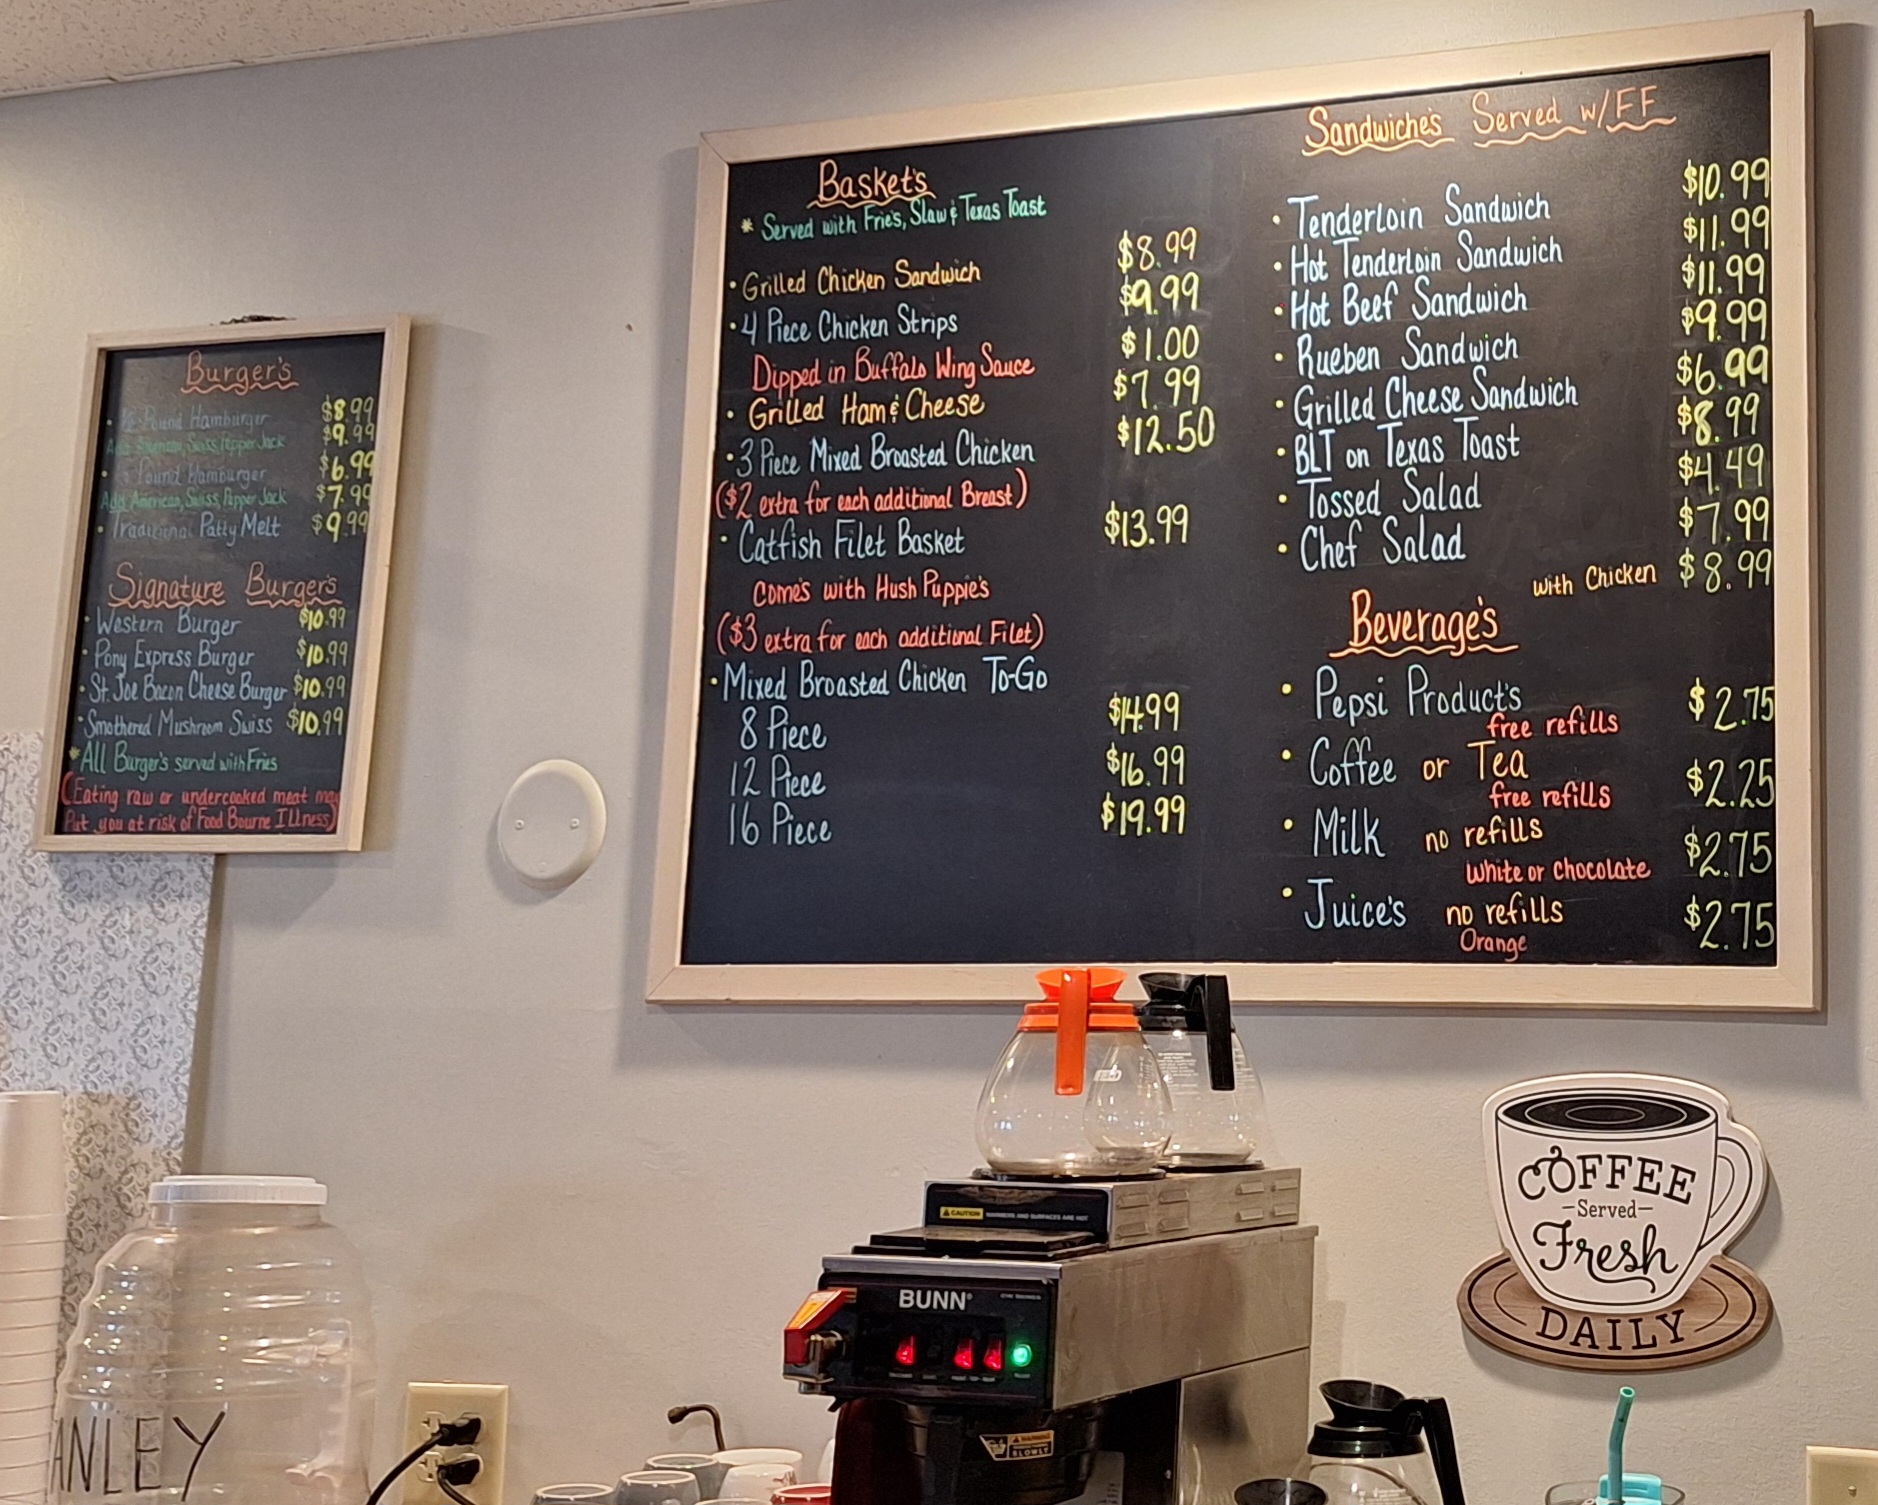 Burger's
½ Pound Hamburger $8.99
Add American, Swiss, Pepper Jack $9.99
Pound Hamburger $6.99
Add American, Swiss, Pepper Jack $7.99
Traditional Patty Melt $9.99
Signature Burger's
Western Burger $10.99
Pony Express Burger $10.99
St. Joe Bacon Cheese Burger $10.99
Smothered Mushroom Swiss $10.99
*All Burger's served with Fries
(Eating raw or undercooked meat may
Put you at risk of Food Bourne Illness)
Basket's
* Served with Frie's, Slaw & Texas Toast
• Grilled Chicken Sandwich $8.99
• 4 Piece Chicken Strips $9.99
Dipped in Buffalo Wing Sauce $1.00
• Grilled Ham & Cheese $7.99
• 3 Piece Mixed Broasted Chicken $12.50
($2 extra for each additional Breast)
• Catfish Filet Basket $13.99
Come's with Hush Puppie's
($3 extra for each additional Filet)
• Mixed Broasted Chicken To-Go
8 Piece $14.99
12 Piece $16.99
16 Piece $19.99
Sandwiche's Served w/FF
• Tenderloin Sandwich $10.99
• Hot Tenderloin Sandwich $11.99
• Hot Beef Sandwich $11.99
• Rueben Sandwich $9.99
• Grilled Cheese Sandwich $6.99
• BLT on Texas Toast $8.99
• Tossed Salad $4.49
• Chef Salad $7.99
with Chicken $8.99
Beverage's
• Pepsi Product's $2.75
free refills
• Coffee or Tea $2.25
free refills
• Milk no refills $2.75
White or chocolate
• Juice's no refills $2.75
Orange
COFFEE
Served
Fresh
DAILY
CAUTION WARMERS AND SURFACES ARE HOT
BUNN®
ANLEY
WARNING
SLOWLY